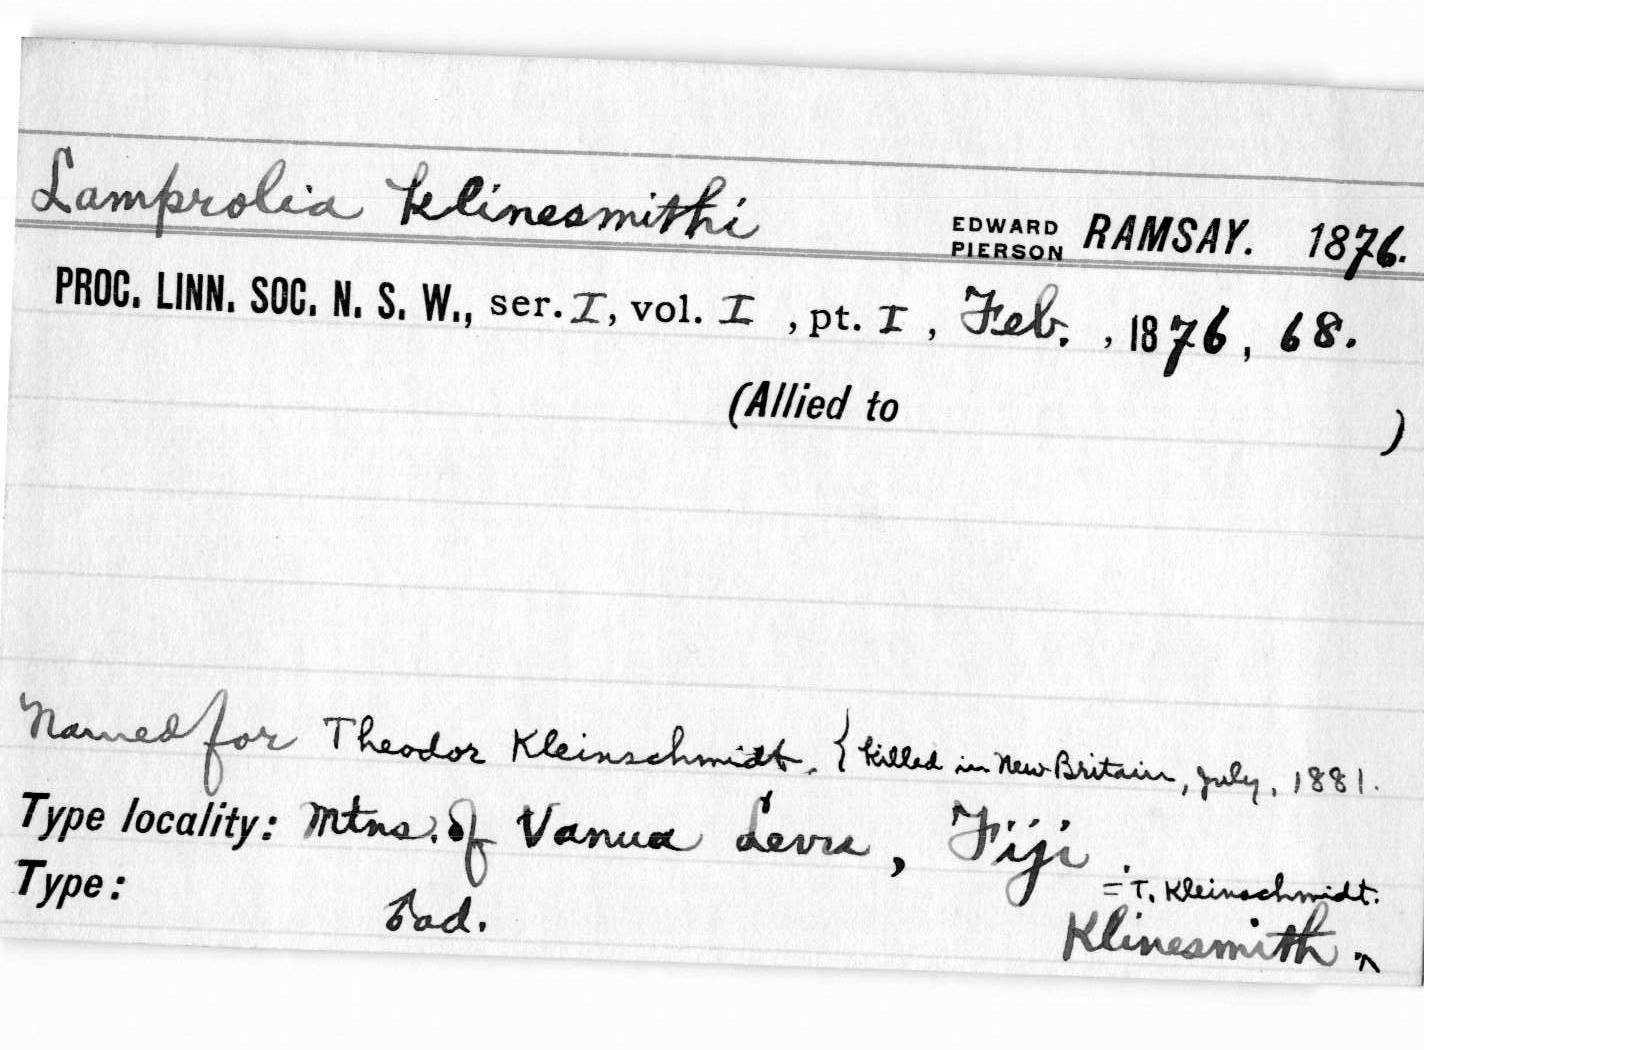 Lamprolia klinesmithi EDWARD PIERSON RAMSAY. 1876.
PROC. LINN. SOC. N. S. W., ser. I, vol. I , pt. I , Feb. , 1876, 68.
(Allied to )
Named for Theodor Kleinschmidt. { killed in New Britain, July, 1881.
Type locality: Mtns. of Vanua Levu, Fiji.
= T. Kleinschmidt.
Type: ad. Klinesmith ^